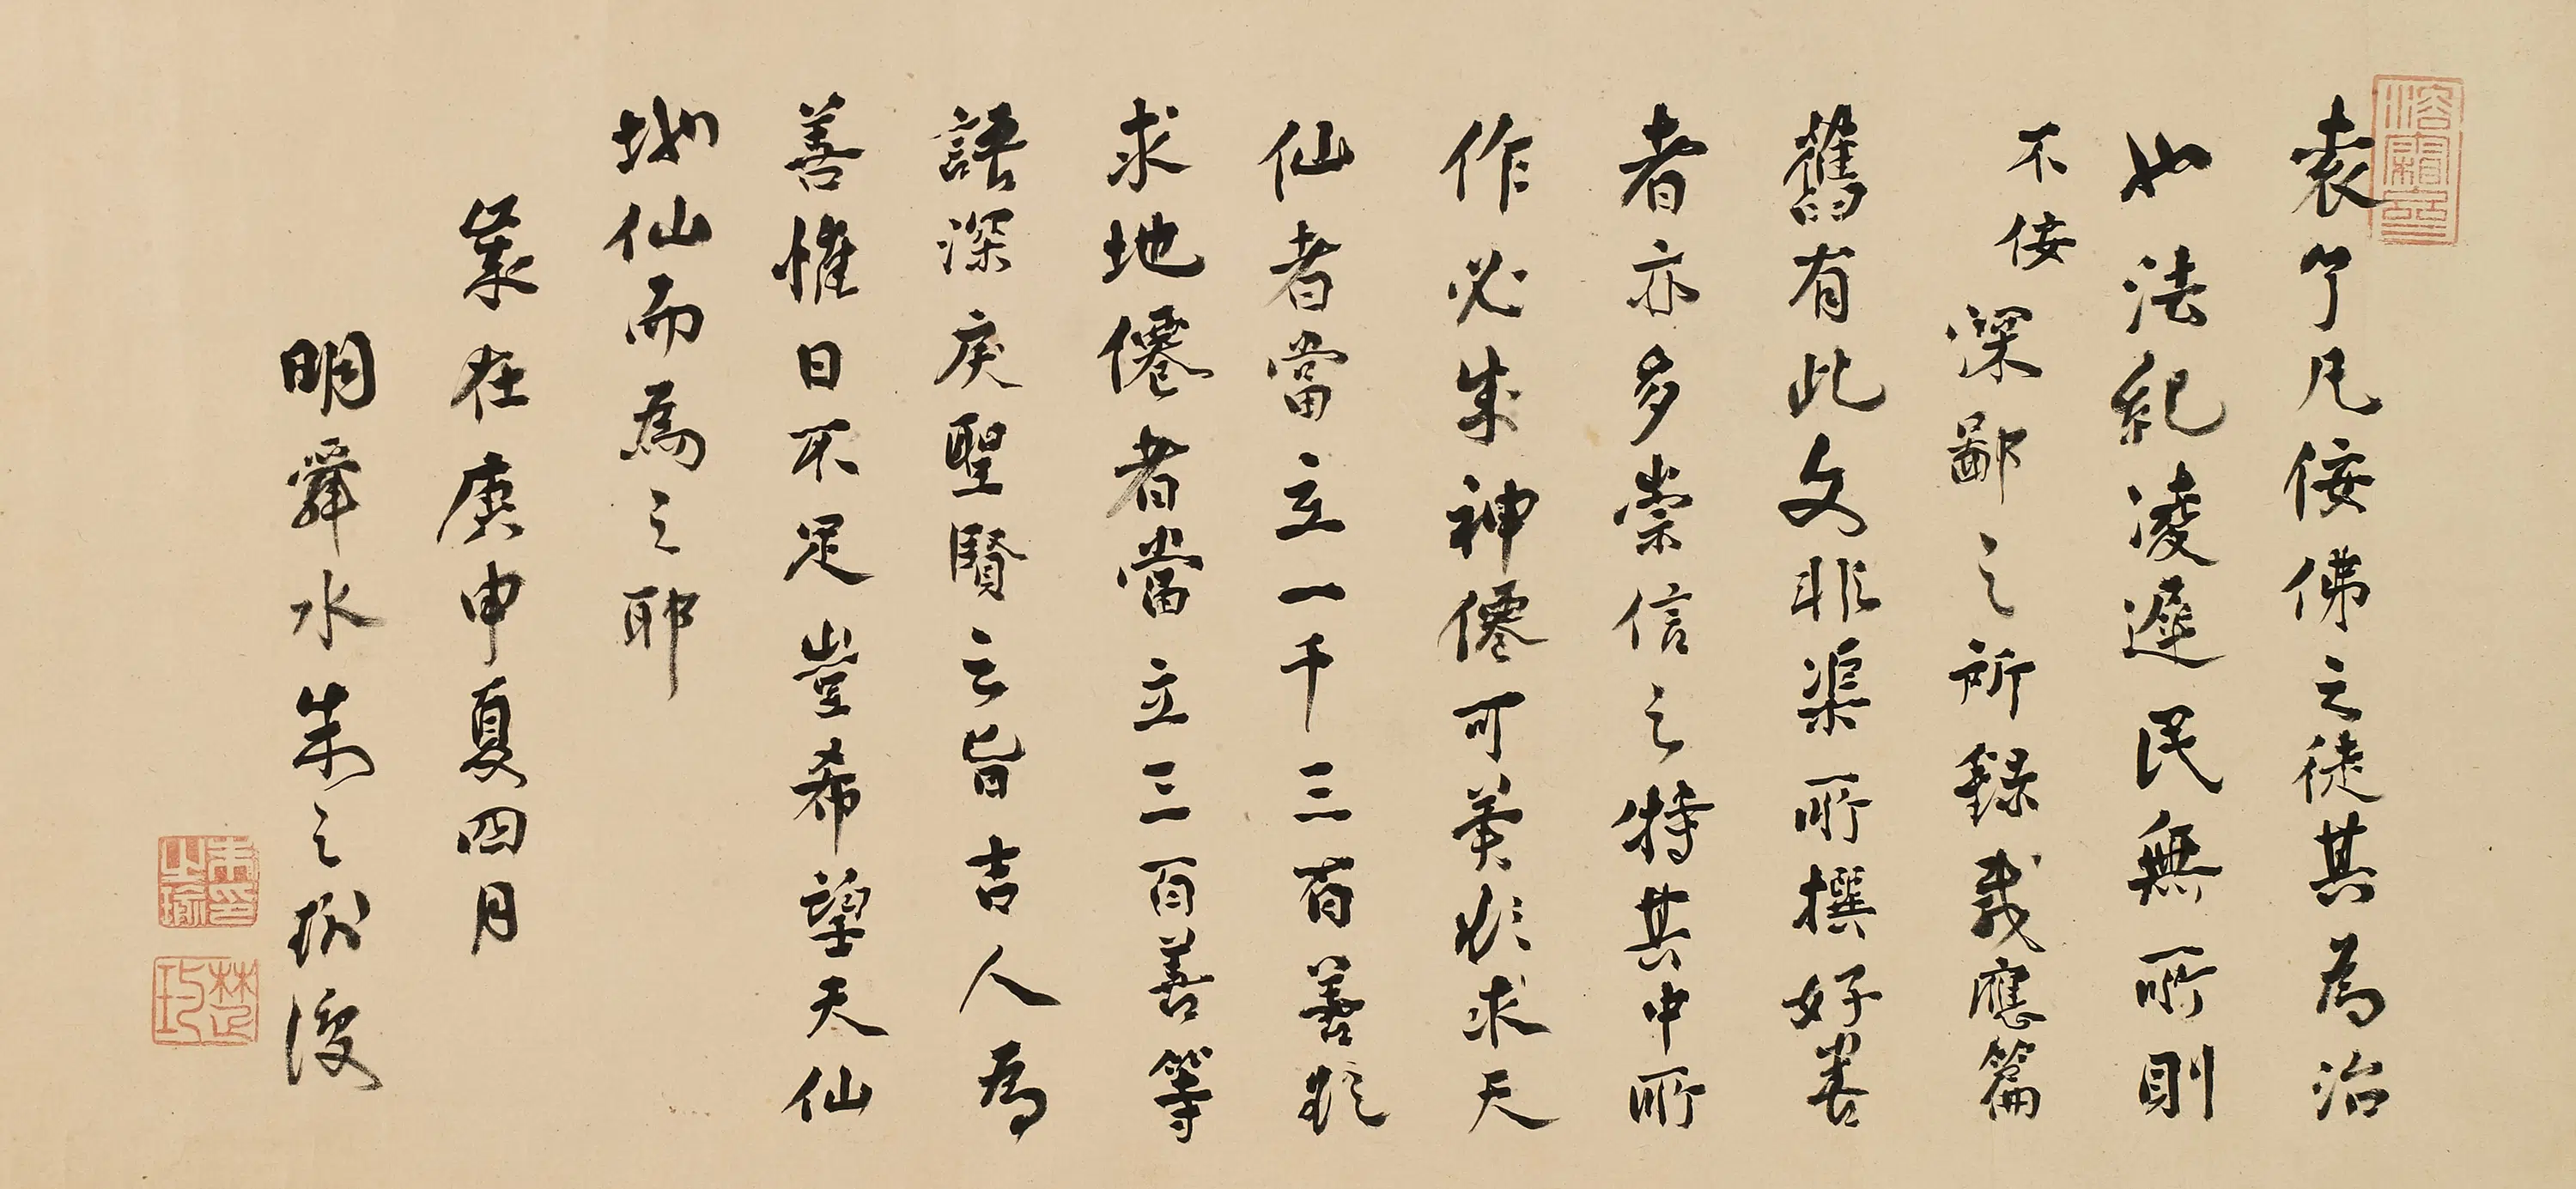 袁了凡佞佛之徒其為治
也法紀凌遲民無所則
不佞深鄙之所錄感應篇
舊有此文非渠所撰好善
者亦多崇信之特其中所
作必成神僊可冀欲求天
仙者當立一千三百善欲
求地僊者當立三百善等
語深戾聖賢之旨吉人為
善惟日不足豈希望天仙
地仙而為之耶
歲在庚申夏四月
明舜水朱之瑜復
溶霜齋
朱之瑜印
楚璵